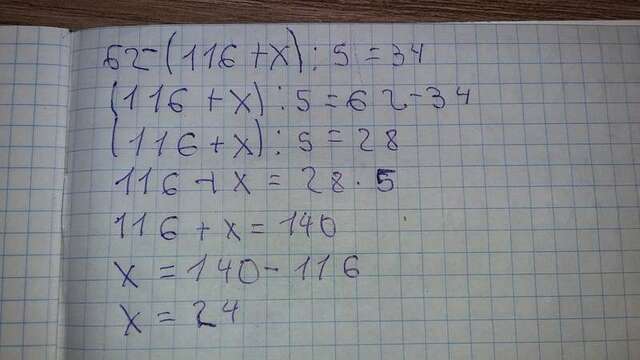 62-(116+x):5=34
(116+x):5=62-34
(116+x):5=28
116+x=28·5
116+x=140
x=140-116
x=24